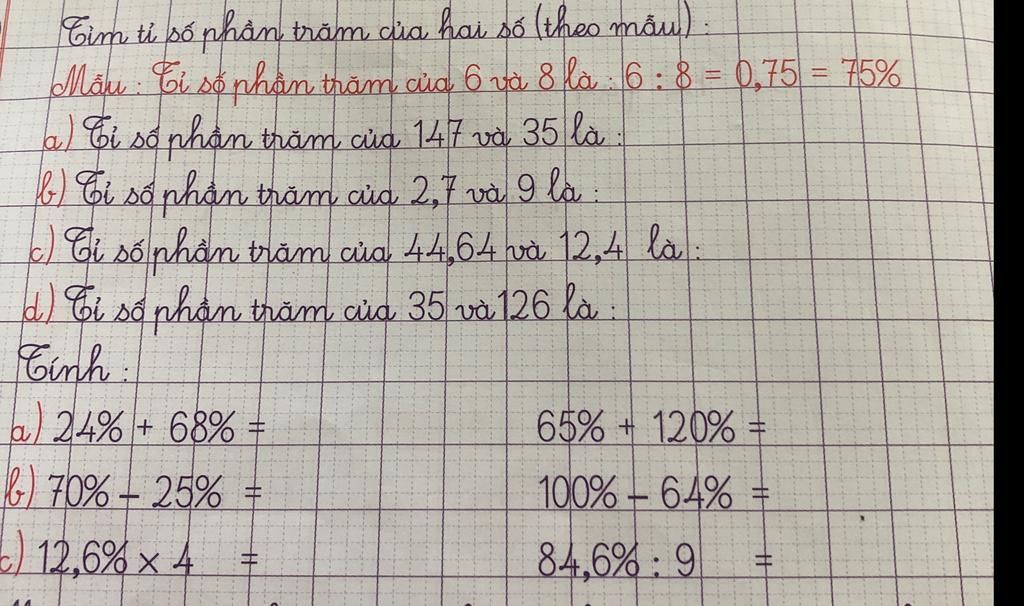 Tìm tỉ số phần trăm của hai số (theo mẫu) :
Mẫu : Tỉ số phần trăm của 6 và 8 là : 6 : 8 = 0,75 = 75%
a) Tỉ số phần trăm của 147 và 35 là :
b) Tỉ số phần trăm của 2,7 và 9 là :
c) Tỉ số phần trăm của 44,64 và 12,4 là :
d) Tỉ số phần trăm của 35 và 126 là :
Tính :
a) 24% + 68% = 65% + 120% =
b) 70% – 25% = 100% – 64% =
c) 12,6% × 4 = 84,6% : 9 =